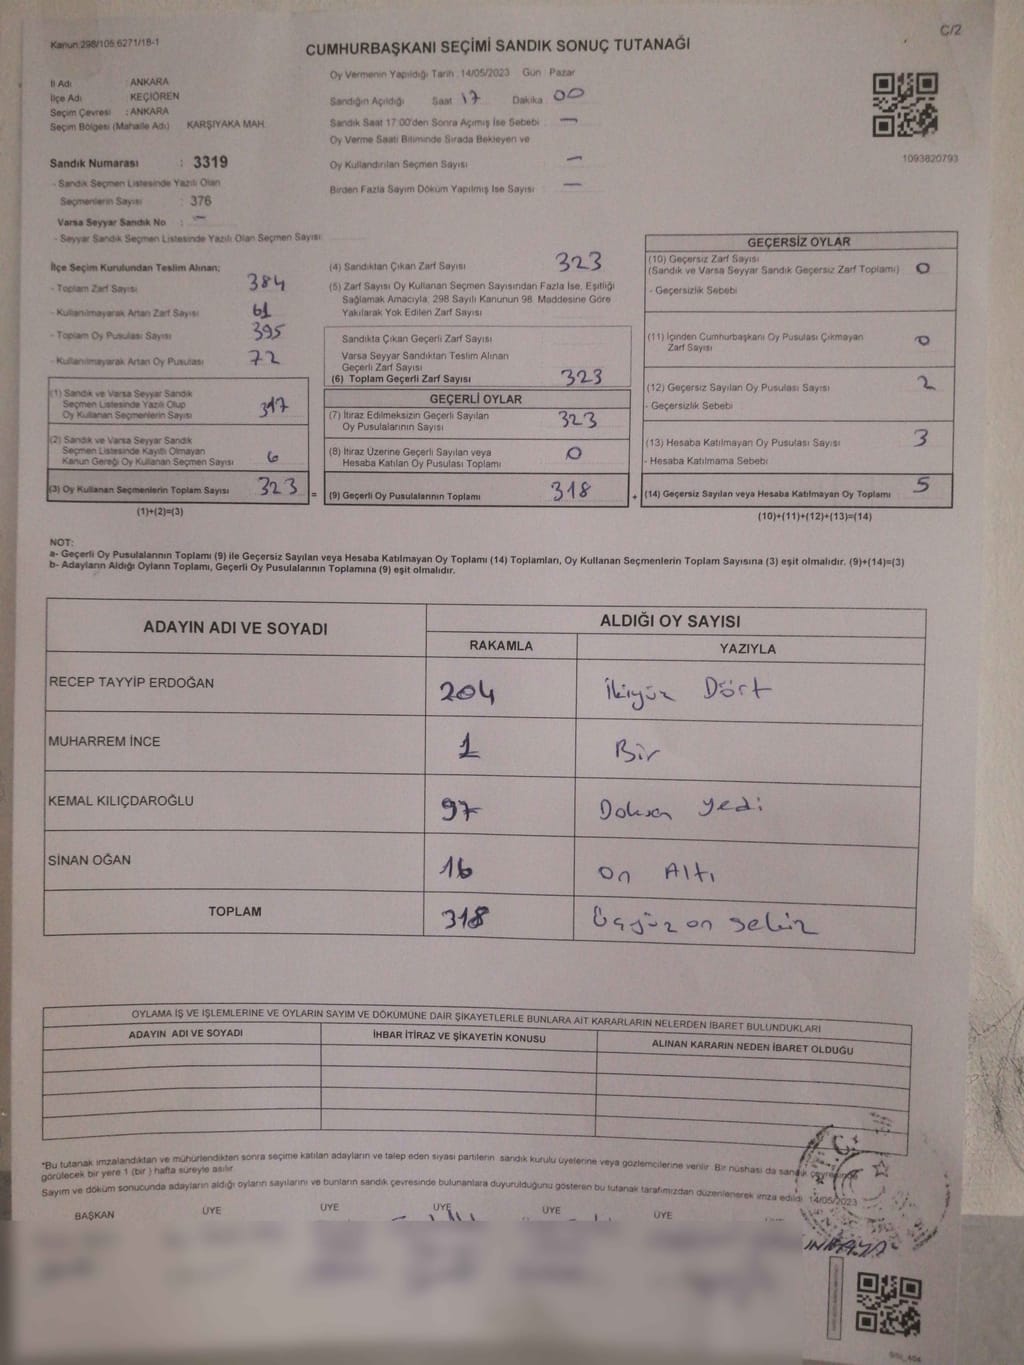 Kanun:298/105,6271/18-1
C/2
CUMHURBAŞKANI SEÇİMİ SANDIK SONUÇ TUTANAĞI
İl Adı : ANKARA
İlçe Adı : KEÇİÖREN
Seçim Çevresi : ANKARA
Seçim Bölgesi (Mahalle Adı) KARŞIYAKA MAH.
Sandık Numarası : 3319
- Sandık Seçmen Listesinde Yazılı Olan
Seçmenlerin Sayısı : 376
Varsa Seyyar Sandık No : —
- Seyyar Sandık Seçmen Listesinde Yazılı Olan Seçmen Sayısı:
Oy Vermenin Yapıldığı Tarih :14/05/2023 Gün : Pazar
Sandığın Açıldığı Saat 17 Dakika 00
Sandık Saat 17:00'den Sonra Açımış İse Sebebi : —
Oy Verme Saati Bitiminde Sırada Bekleyen ve
Oy Kullandırılan Seçmen Sayısı —
Birden Fazla Sayım Döküm Yapılmış İse Sayısı : —
1093820793
İlçe Seçim Kurulundan Teslim Alınan;
- Toplam Zarf Sayısı 384
- Kullanılmayarak Artan Zarf Sayısı 61
- Toplam Oy Pusulası Sayısı 395
- Kullanılmayarak Artan Oy Pusulası 72
(1) Sandık ve Varsa Seyyar Sandık
Seçmen Listesinde Yazılı Olup
Oy Kullanan Seçmenlerin Sayısı 317
(2) Sandık ve Varsa Seyyar Sandık
Seçmen Listesinde Kayıtlı Olmayan
Kanun Gereği Oy Kullanan Seçmen Sayısı 6
(3) Oy Kullanan Seçmenlerin Toplam Sayısı 323
(1)+(2)=(3)
(4) Sandıktan Çıkan Zarf Sayısı 323
(5) Zarf Sayısı Oy Kullanan Seçmen Sayısından Fazla İse, Eşitliği
Sağlamak Amacıyla, 298 Sayılı Kanunun 98. Maddesine Göre
Yakılarak Yok Edilen Zarf Sayısı
Sandıkta Çıkan Geçerli Zarf Sayısı
Varsa Seyyar Sandıktan Teslim Alınan
Geçerli Zarf Sayısı
(6) Toplam Geçerli Zarf Sayısı 323
GEÇERLİ OYLAR
(7) İtiraz Edilmeksizin Geçerli Sayılan
Oy Pusulalarının Sayısı 323
(8) İtiraz Üzerine Geçerli Sayılan veya
Hesaba Katılan Oy Pusulası Toplamı 0
= (9) Geçerli Oy Pusulalarının Toplamı 318
GEÇERSİZ OYLAR
(10) Geçersiz Zarf Sayısı
(Sandık ve Varsa Seyyar Sandık Geçersiz Zarf Toplamı) 0
- Geçersizlik Sebebi
(11) İçinden Cumhurbaşkanı Oy Pusulası Çıkmayan
Zarf Sayısı 0
(12) Geçersiz Sayılan Oy Pusulası Sayısı 2
- Geçersizlik Sebebi
(13) Hesaba Katılmayan Oy Pusulası Sayısı 3
- Hesaba Katılmama Sebebi
+ (14) Geçersiz Sayılan veya Hesaba Katılmayan Oy Toplamı 5
(10)+(11)+(12)+(13)=(14)
NOT:
a- Geçerli Oy Pusulalarının Toplamı (9) ile Geçersiz Sayılan veya Hesaba Katılmayan Oy Toplamı (14) Toplamları, Oy Kullanan Seçmenlerin Toplam Sayısına (3) eşit olmalıdır. (9)+(14)=(3)
b- Adayların Aldığı Oyların Toplamı, Geçerli Oy Pusulalarının Toplamına (9) eşit olmalıdır.
ADAYIN ADI VE SOYADI ALDIĞI OY SAYISI
RAKAMLA YAZIYLA
RECEP TAYYİP ERDOĞAN 204 İkiyüz Dört
MUHARREM İNCE 1 Bir
KEMAL KILIÇDAROĞLU 97 Doksan yedi
SİNAN OĞAN 16 on Altı
TOPLAM 318 Üçyüz on sekiz
OYLAMA İŞ VE İŞLEMLERİNE VE OYLARIN SAYIM VE DÖKÜMÜNE DAİR ŞİKAYETLERLE BUNLARA AİT KARARLARIN NELERDEN İBARET BULUNDUKLARI
ADAYIN ADI VE SOYADI İHBAR İTİRAZ VE ŞİKAYETİN KONUSU ALINAN KARARIN NEDEN İBARET OLDUĞU
*Bu tutanak imzalandıktan ve mühürlendikten sonra seçime katılan adayların ve talep eden siyasi partilerin sandık kurulu üyelerine veya gözlemcilerine verilir. Bir nüshası da sandık çevresinde
görülecek bir yere 1 (bir ) hafta süreyle asılır.
Sayım ve döküm sonucunda adayların aldığı oyların sayılarını ve bunların sandık çevresinde bulunanlara duyurulduğunu gösteren bu tutanak tarafımızdan düzenlenerek imza edildi. 14/05/2023
BAŞKAN ÜYE ÜYE ÜYE ÜYE ÜYE